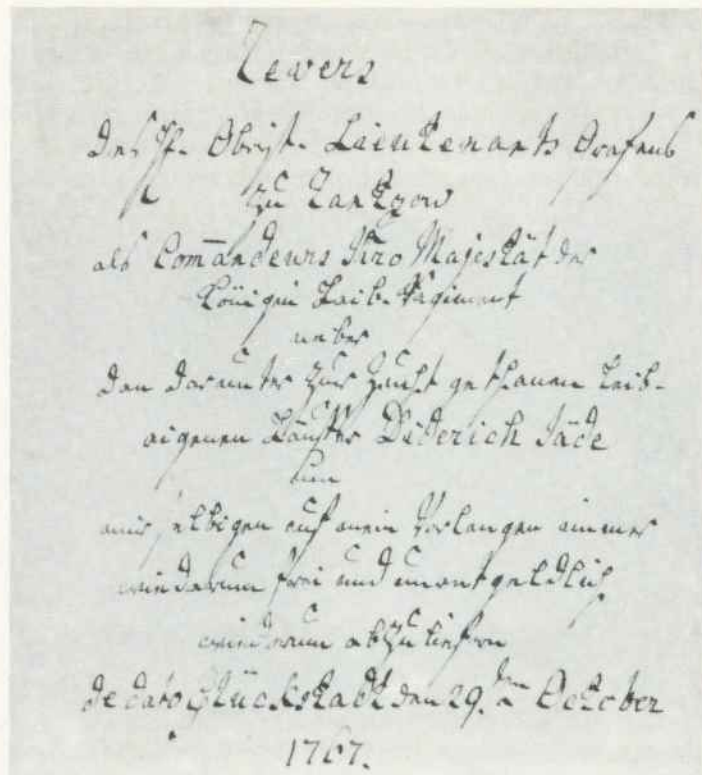 Revers
des H. Obrist-Lieutenants Grafens
zu Rantzow
als Commandeurs Ihro Majestät der
Königin Leib-Regiment
ueber
den darunter zur Zucht gethanen Leib-
eigenen Läufer Diderich Jäde
um
mir selbigen auf mein Verlangen immer
wiederum frei und unentgeldlich
wiederum abzuliefern
de dato Glückstadt den 29. October
1767.